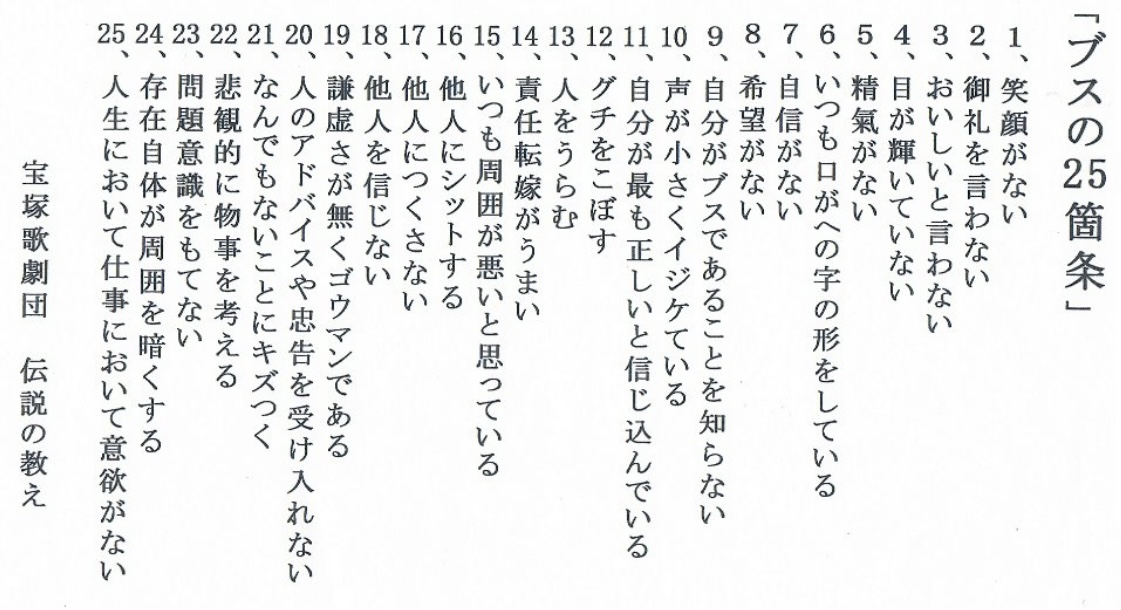 「ブスの25箇条」
1、笑顔がない
2、御礼を言わない
3、おいしいと言わない
4、目が輝いていない
5、精氣がない
6、いつも口がへの字の形をしている
7、自信がない
8、希望がない
9、自分がブスであることを知らない
10、声が小さくイジケている
11、自分が最も正しいと信じ込んでいる
12、グチをこぼす
13、人をうらむ
14、責任転嫁がうまい
15、いつも周囲が悪いと思っている
16、他人にシットする
17、他人につくさない
18、他人を信じない
19、謙虚さが無くゴウマンである
20、人のアドバイスや忠告を受け入れない
21、なんでもないことにキズつく
22、悲観的に物事を考える
23、問題意識をもてない
24、存在自体が周囲を暗くする
25、人生において仕事において意欲がない
宝塚歌劇団 伝説の教え